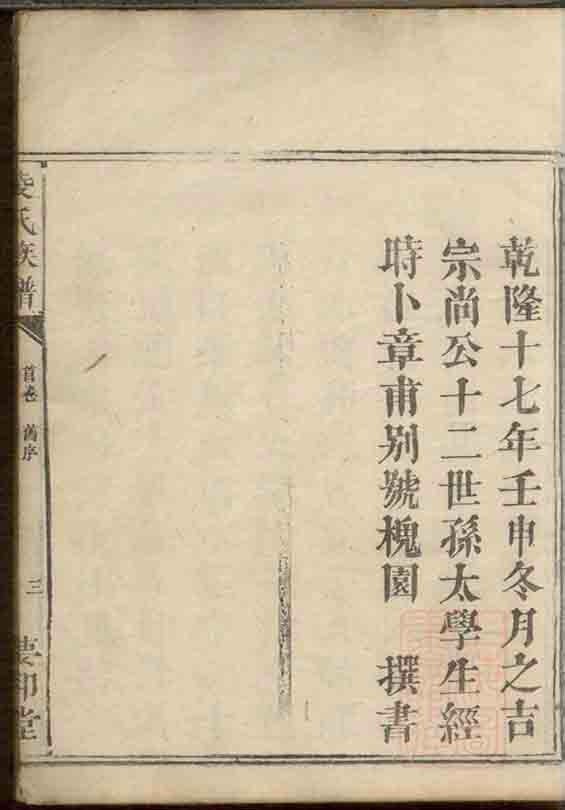 乾隆十七年壬申冬月之吉
宗尚公十二世孫太學生經
時卜章甫别號槐園 撰書
氏族譜
首卷 舊序
三
堂